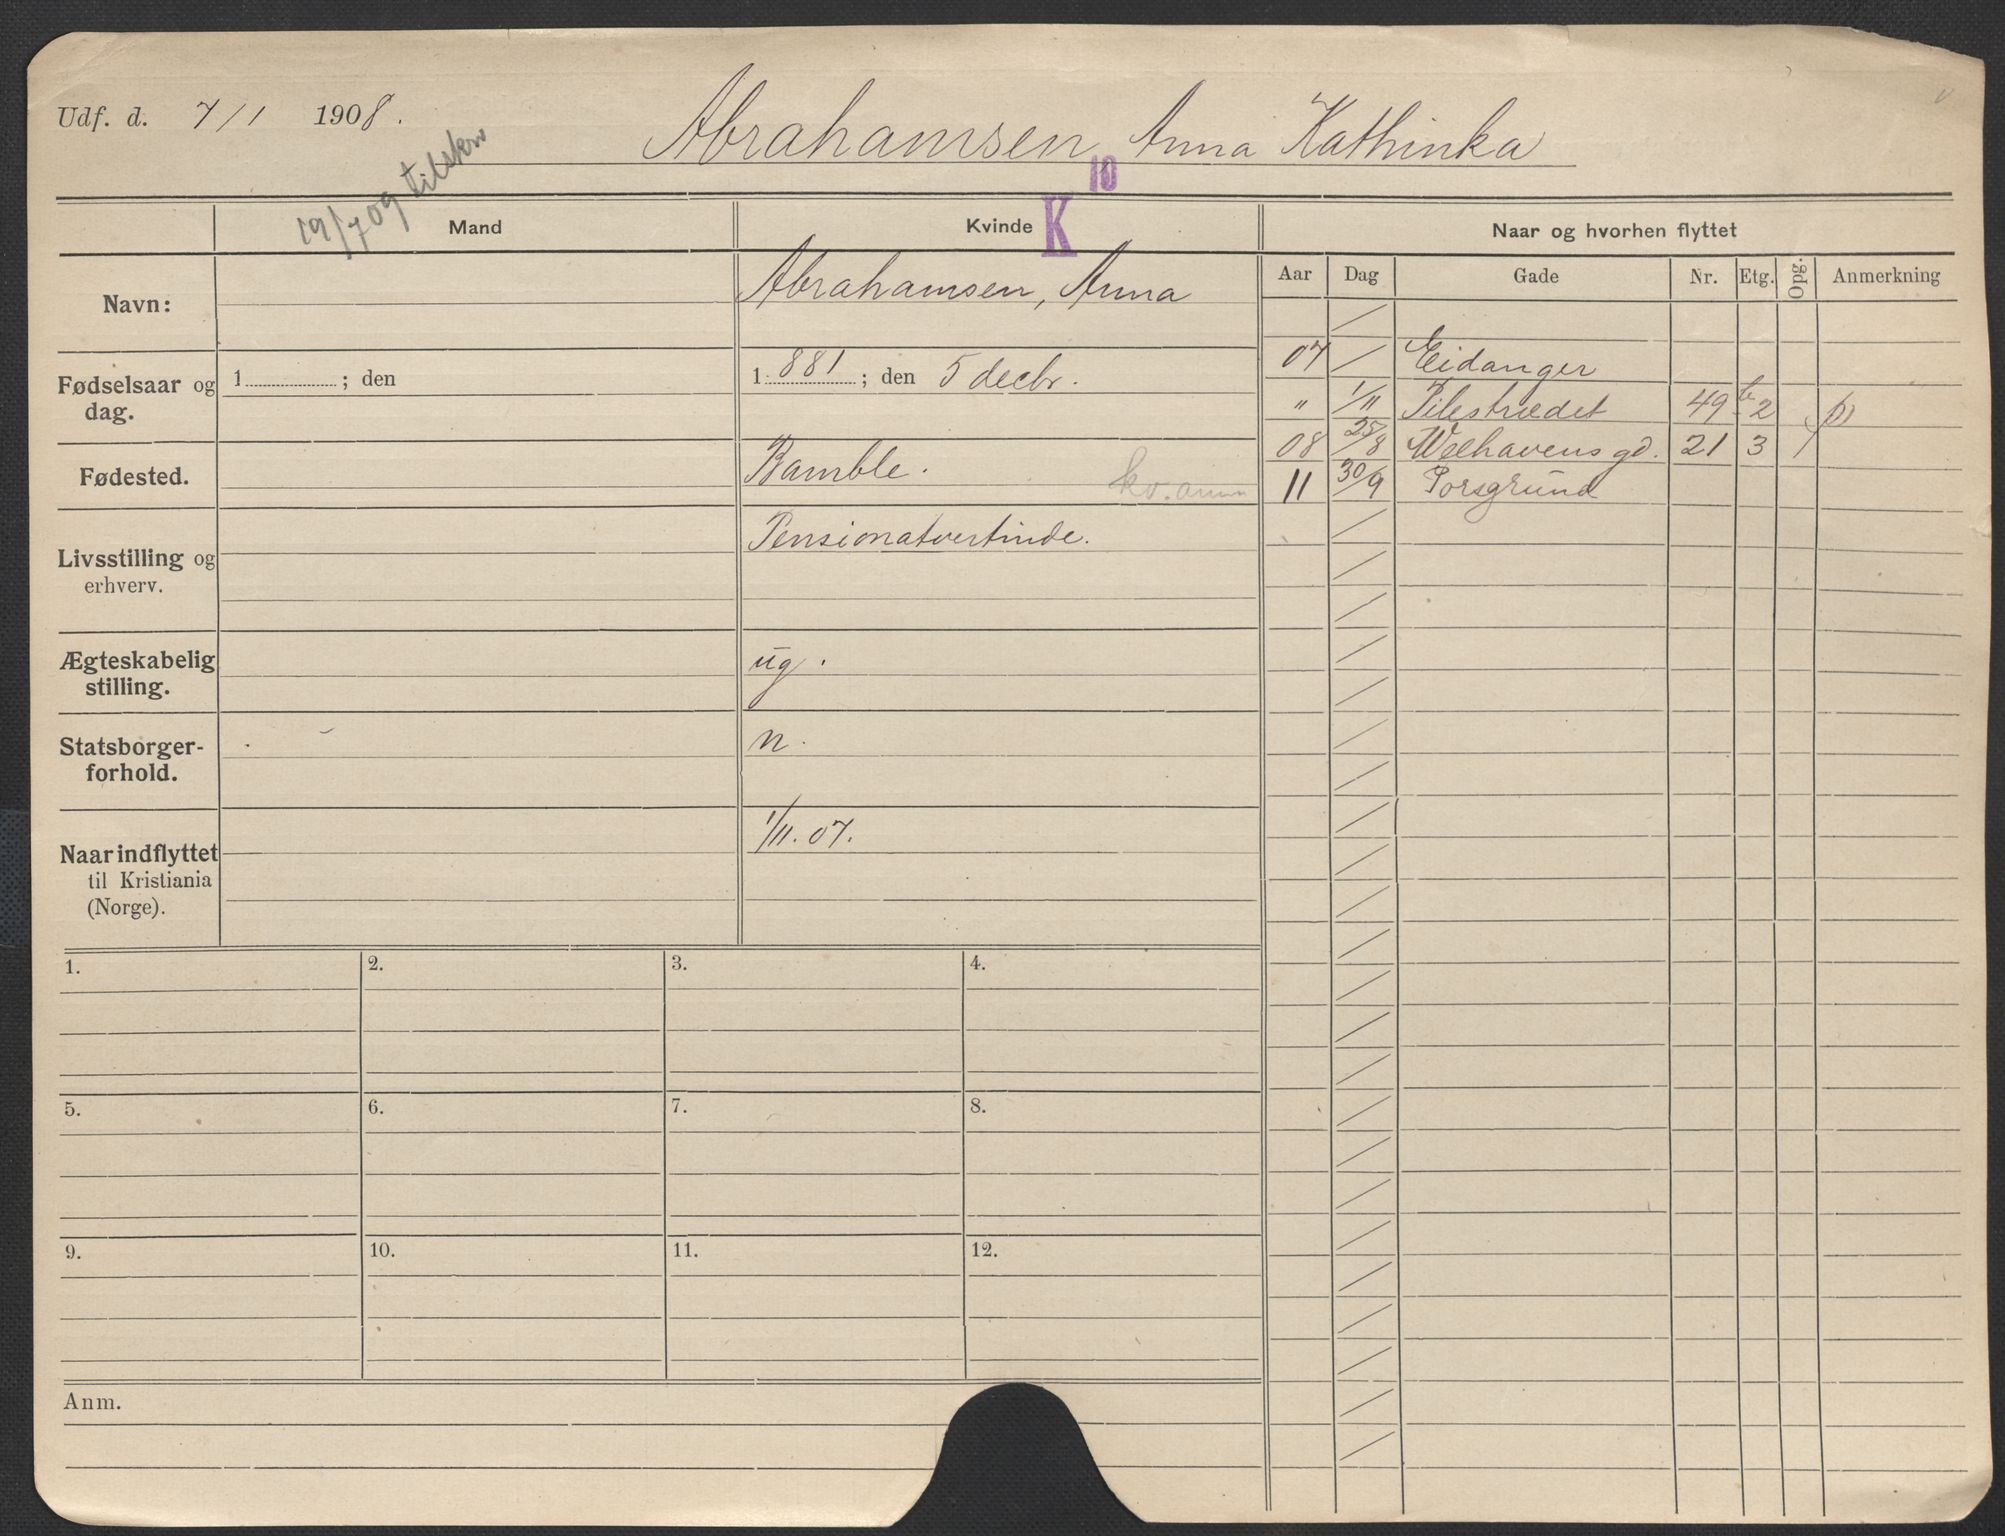 Udf. d. 7/1 1908.
Abrahamsen, Anna Kathinka
19/7 09 tilskr
10
K
Mand
Kvinde
Naar og hvorhen flyttet
Aar Dag Gade Nr. Etg. Opg. Anmerkning
Navn:
Abrahamsen, Anna
Fødselsaar og dag.
1 ; den
1 881 ; den 5 decbr.
Fødested.
Bamble.
kv.
Livsstilling og erhverv.
Pensionatvertinde.
Ægteskabelig stilling.
ug.
Statsborgerforhold.
n.
Naar indflyttet til Kristiania (Norge).
1/11. 07.
07 / Eidanger
" 1/11 Pilestrædet 49 b 2
08 25/8 Welhavens gd. 21 3 /
11 30/9 Porsgrund
1. 2. 3. 4.
5. 6. 7. 8.
9. 10. 11. 12.
Anm.